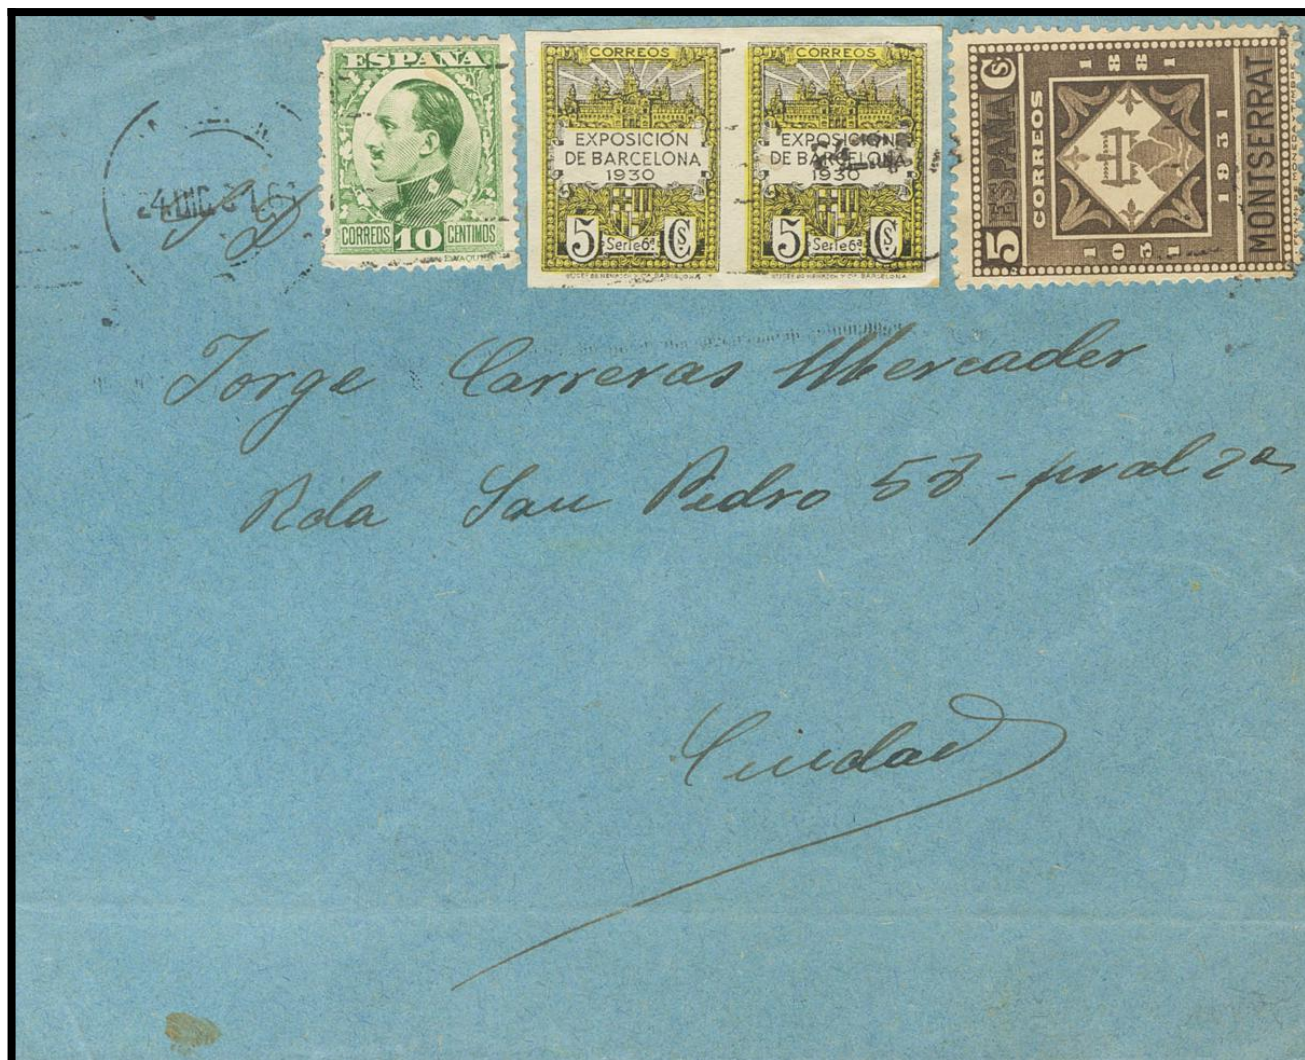 ESPAÑA
CORREOS 10 CENTIMOS
CORREOS
EXPOSICIÓN
DE BARCELONA
1930
5 Serie 6ª Cs.
CORREOS
EXPOSICIÓN
DE BARCELONA
1930
5 Serie 6ª Cs.
5 ESPAÑA Cs
CORREOS
1881
1031
1931
MONTSERRAT
4 DIC 31
Jorge Carreras Mercader
Rda San Pedro 53 - pral 2ª
Ciudad